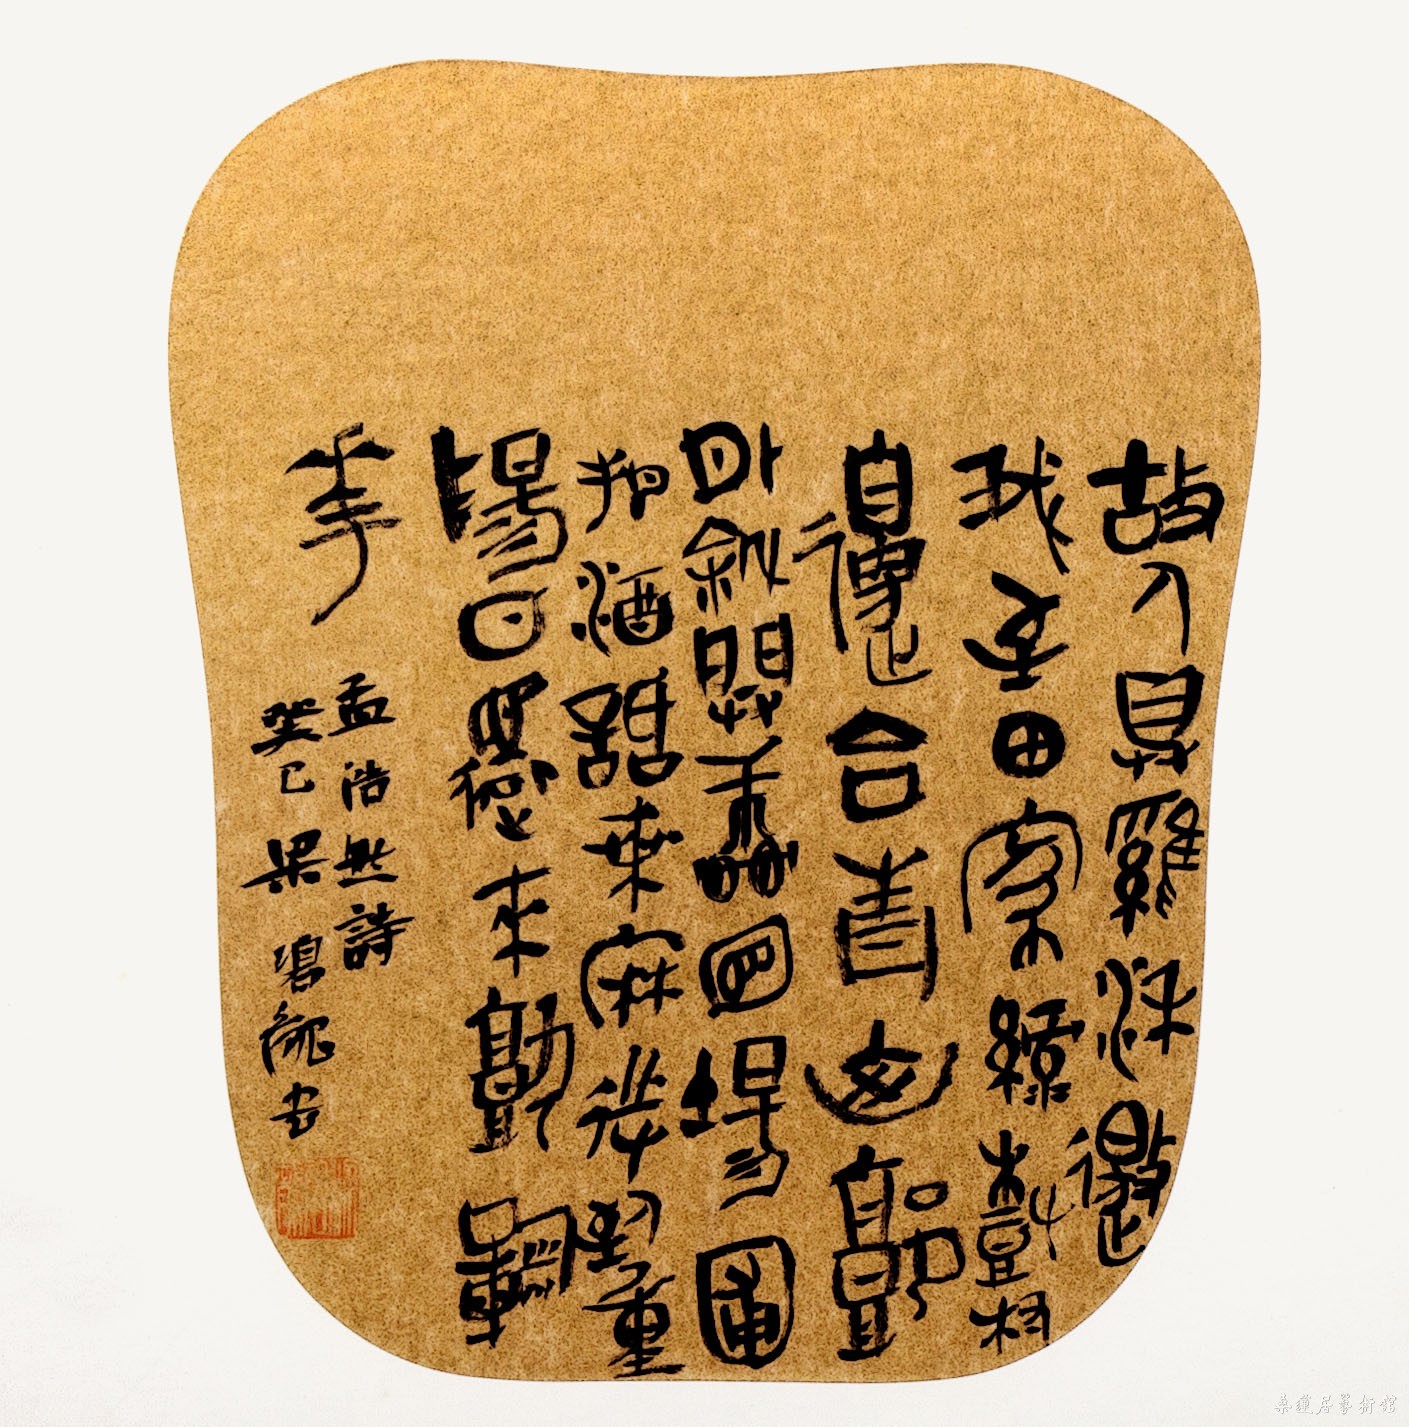 故人具雞黍邀
我至田家綠樹村
邊合青山郭
外斜開軒面場圃
把酒話桑麻待到重
陽日還來就菊
華
孟浩然詩
癸巳梁书
桑蓮居藝術館